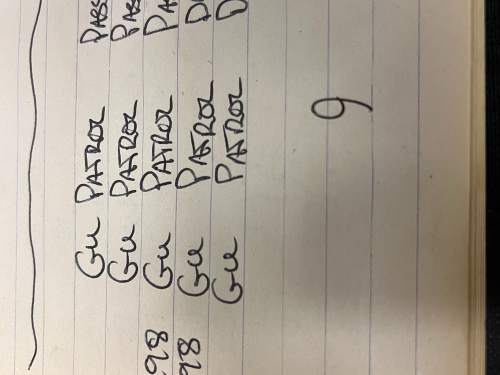 GU PATROL PASS
GU PATROL PAS
98 GU PATROL PA
98 GU PATROL
GU PATROL D
9